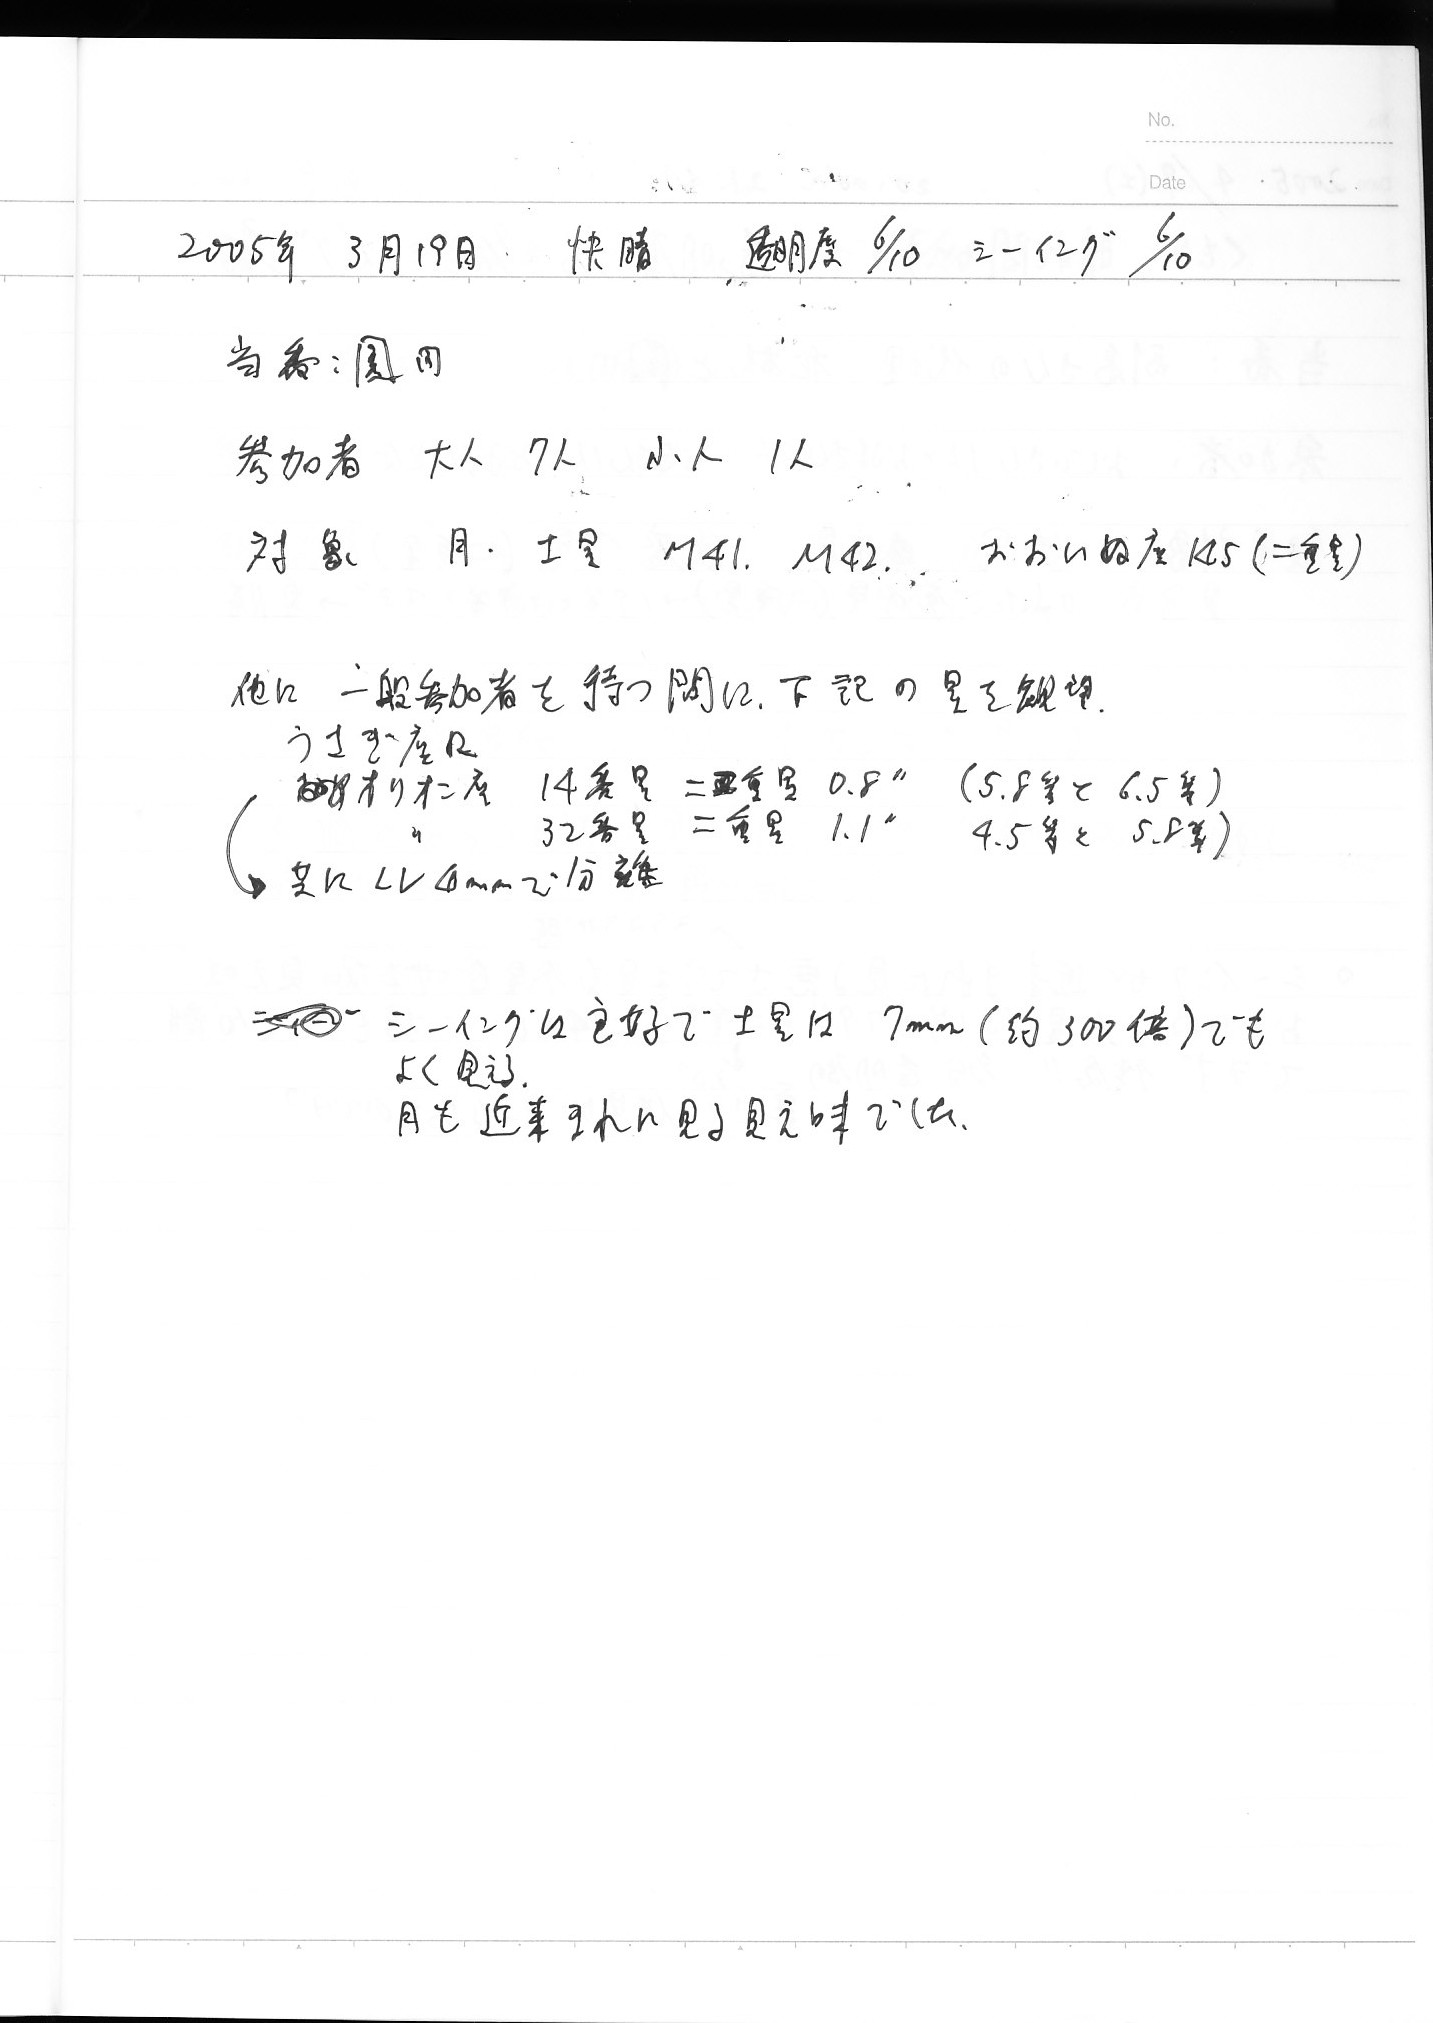 No.
Date
2005年 3月19日. 快晴 透明度 6/10 シーイング 6/10
当番:
参加者 大人 7人 小人 1人
対象 月. 土星 M41. M42. おおいぬ座 145 (二重星)
他に 一般参加者を待つ間に、下記の星を観望.
うさぎ座R
オリオン座 14番星 二重星 0.8" (5.8等と 6.5等)
〃 32番星 二重星 1.1" 4.5等と 5.8等)
共に LV4mmで分離
シーイングは良好で 土星は 7mm (約300倍)でも
よく見える.
月も近来まれに見る見え味でした.